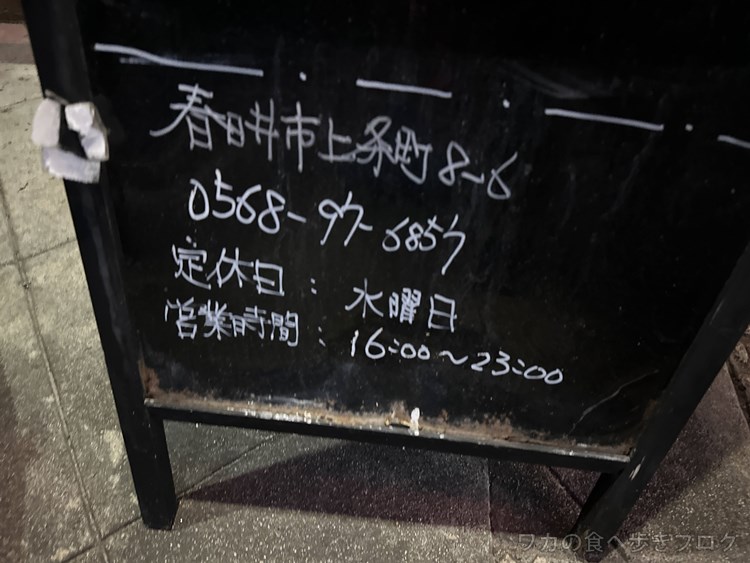 春日井市上条町8-6
0568-97-6857
定休日：水曜日
営業時間：16:00～23:00
ワカの食べ歩きブログ